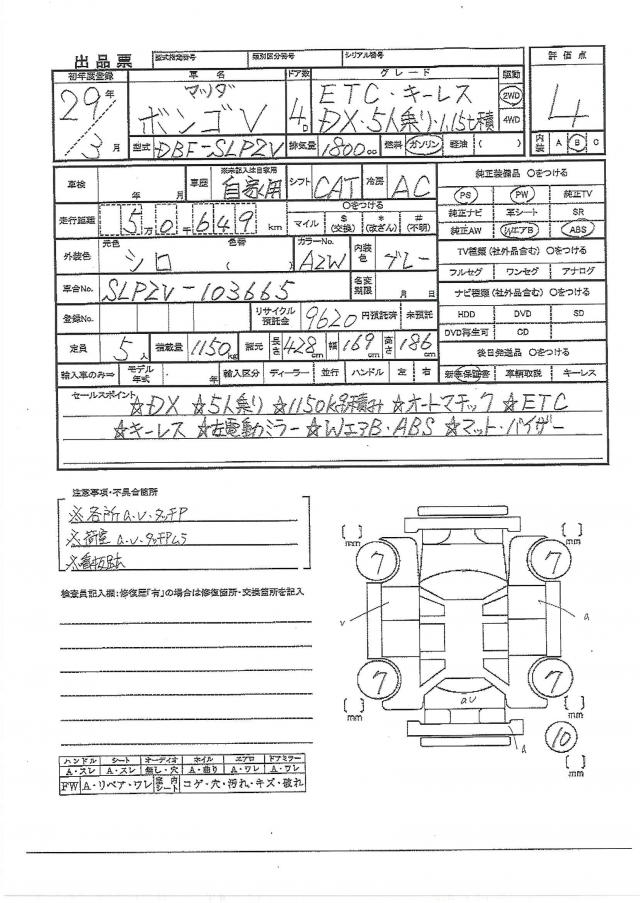 出品票 型式指定番号 類別区分番号 シリアル番号
初年度登録 車名 ドア数 グレード 駆動 評価点
29年 マツダ 4D ETC・キーレス 2WD 4
3月 ボンゴV DX・5人乗り・1.15t積 4WD
型式 DBF-SLP2V 排気量 1800cc 燃料 ガソリン 軽油 ( ) 内装 A B C
車検 年 月 車歴 ※未記入は自家用 自家用 シフト CAT 冷房 AC 純正装備品 〇をつける
走行距離 5万0千649km 〇をつける マイル $(交換) *(改ざん) #(不明) PS PW 純正TV
純正ナビ 革シート SR
外装色 元色 シロ 色替 ( ) カラーNo. A2W 内装色 グレー 純正AW WエアB ABS
TV種類(社外品含む) 〇をつける
車台No. SLP2V-103665 名変期限 月 日 フルセグ ワンセグ アナログ
ナビ種類(社外品含む) 〇をつける
登録No. リサイクル預託金 9620円預託済 未預託 HDD DVD SD
DVD再生可 CD
定員 5人 積載量 1150kg 諸元 長さ 428cm 幅 169cm 高さ 186cm 後日発送品 〇をつける
輸入車のみ⇒ モデル年式 年 輸入区分 ディーラー 並行 ハンドル 左 右 新車保証書 車輌取説 キーレス
セールスポイント ☆DX ☆5人乗り ☆1150kg積み ☆オートマチック ☆ETC
☆キーレス ☆左電動ミラー ☆WエアB・ABS ☆マット・バイザー
注意事項・不具合箇所
※各所a.v.タッチP
※荷室 a.v.タッチPムラ
※看板
検査員記入欄:修復歴「有」の場合は修復箇所・交換箇所を記入
[ ]mm 7 7 [ ]mm
v a
[ ]mm 7 7 [ ]mm
av
a 10 [ ]mm
ハンドル シート オーディオ ホイル エアロ ドアミラー
A・スレ A・スレ 無し・穴 A・曲り A・ワレ A・ワレ
FW A・リペア・ワレ 室内シート コゲ・穴・汚れ・キズ・破れ